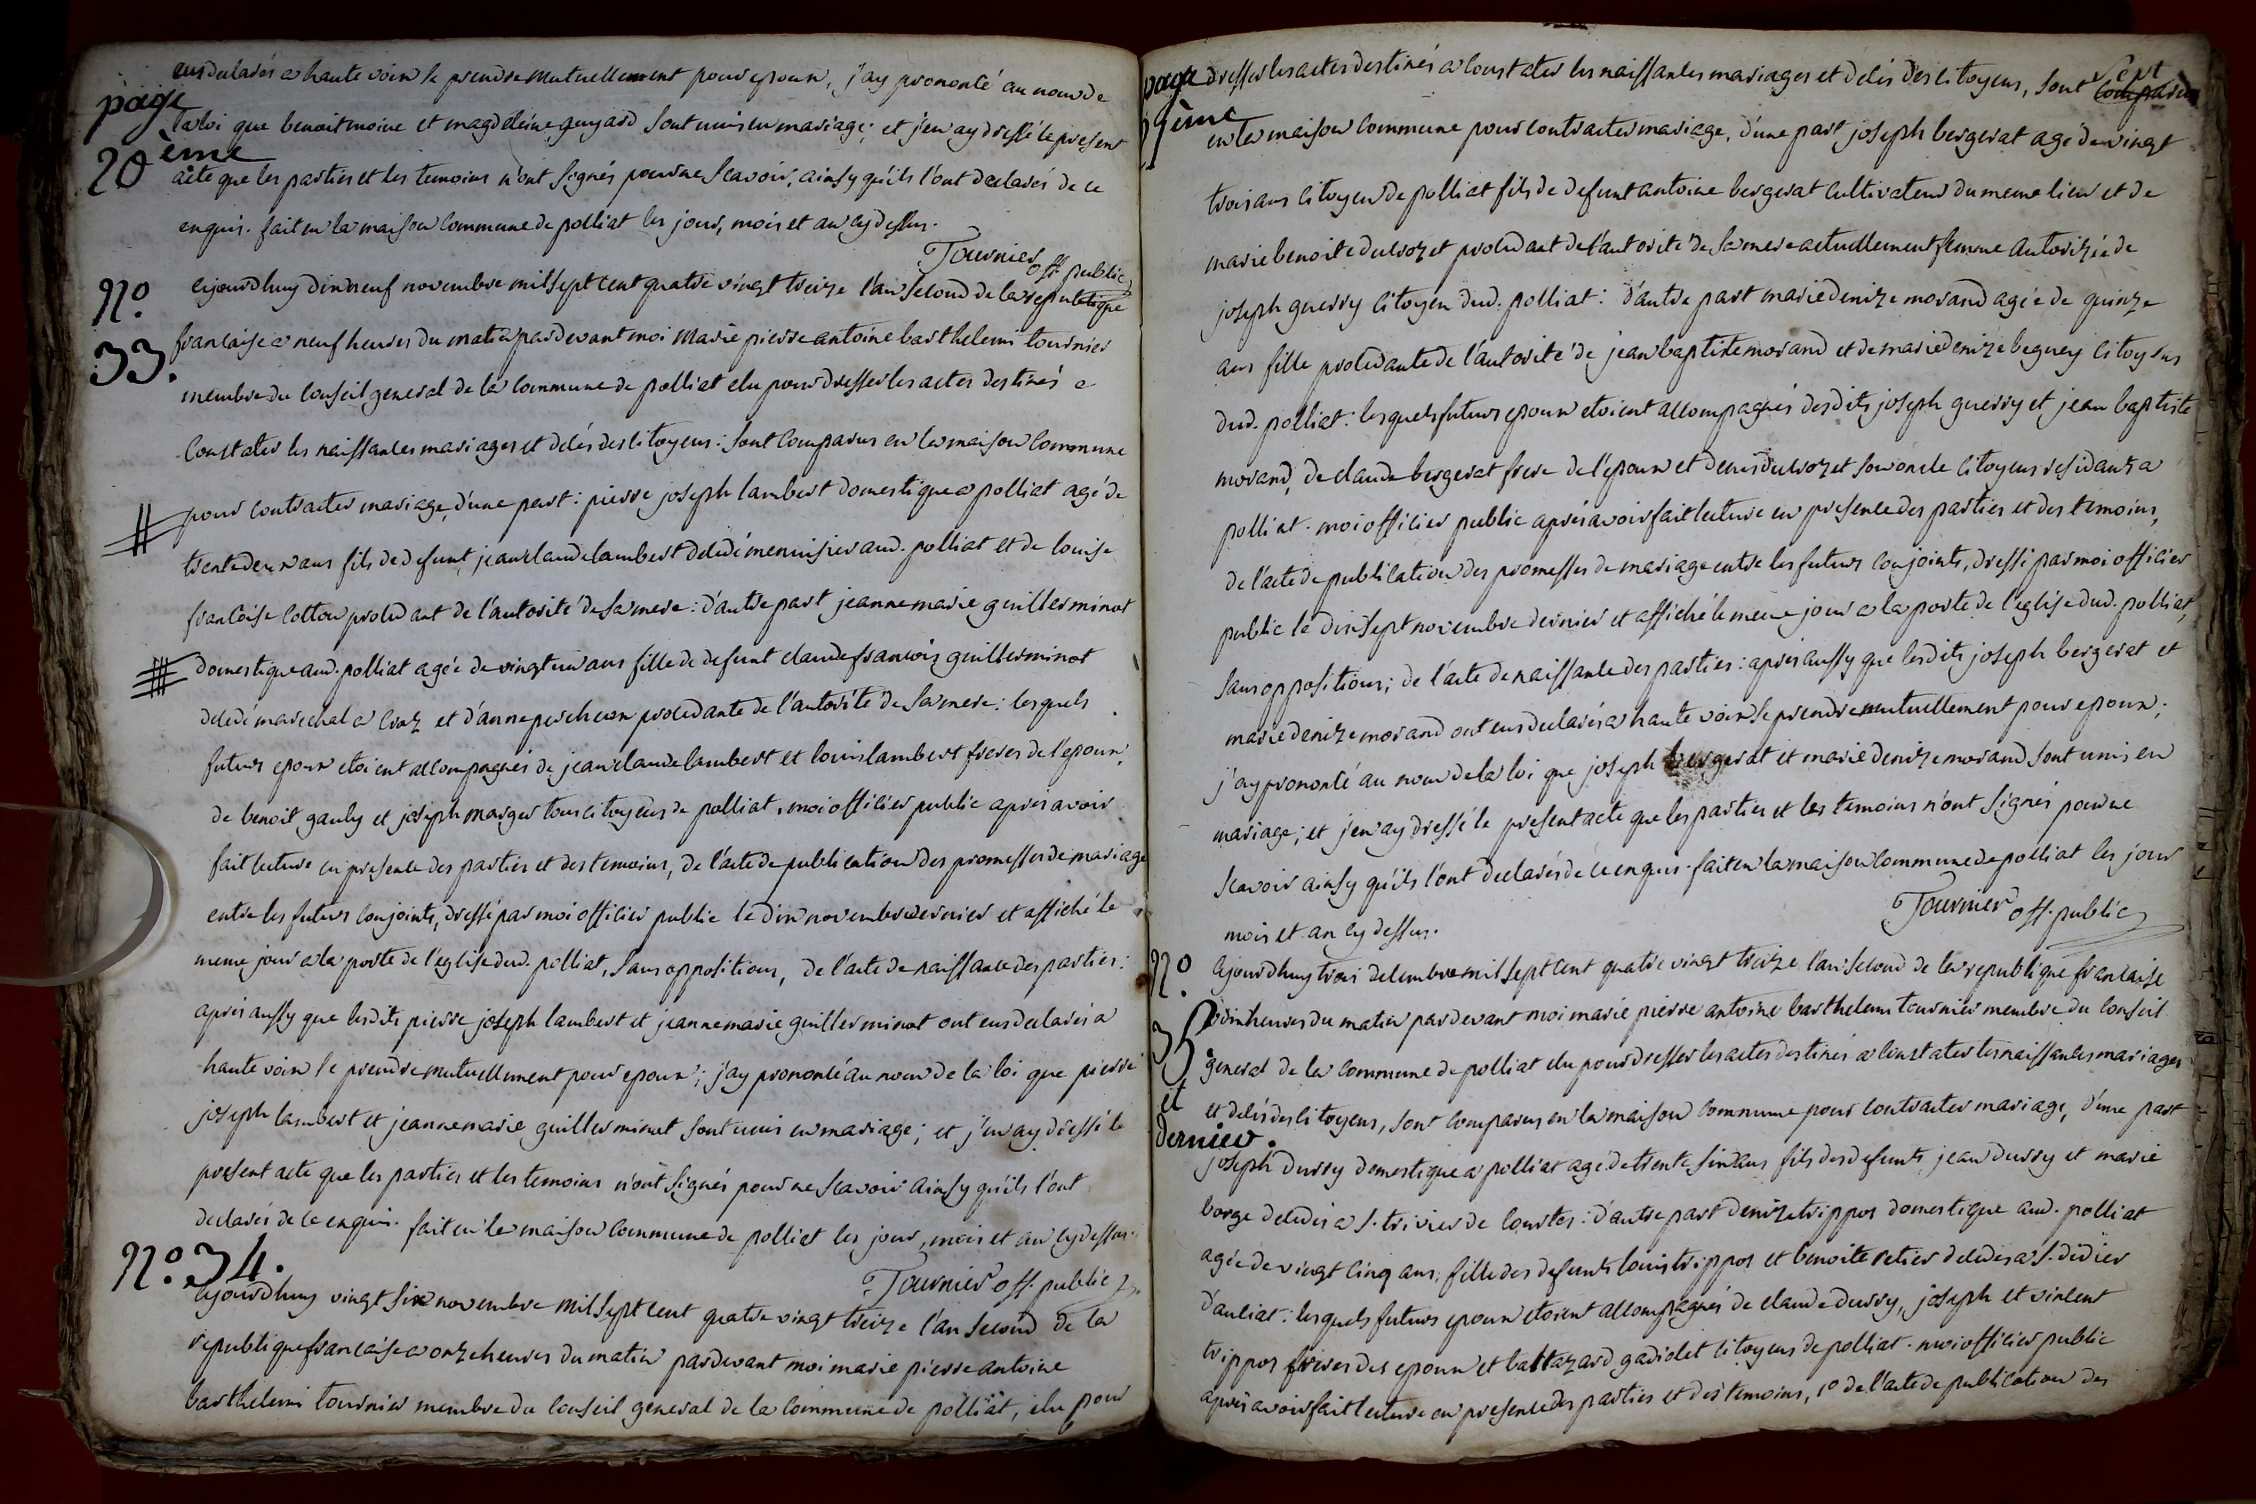 eus declarés a haute voix se prendre mutuellement pour epoux, j'ay prononcé au nom de
page
la loi que benoit moine et magdeleine guyard sont unis en mariage; et j'en ay dressé le present
20 ème
acte que les parties et les temoins n'ont signés pour ne scavoir, ainsy qu'ils l'ont declarés de ce
enquis. fait en la maison commune de polliat les jour, mois et an cy dessus.
Tournier off. public
N.o 33.
ajourdhuy dix neuf novembre mil sept cent quatre vingt treize l'an second de la republique
francaise a neuf heures du matin pardevant moi marie pierre antoine barthelemi tournier
membre du conseil general de la commune de polliat elu pour dresser les actes destinés a
constater les naissances mariages et décés des citoyens: sont comparus en la maison commune
pour contracter mariage, d'une part: pierre joseph lambert domestique a polliat agé de
trente deux ans fils de defunt jean claude lambert decedé menuisier aud. polliat et de louise
francoise cotton procedant de l'autorité de sa mere: d'autre part jeanne marie guillerminot
domestique aud. polliat agée de vingt un ans fille de defunt claude francois guillerminot
decedé marechal a cruz et d'anne percheron procedante de l'autorité de sa mere: lesquels
futurs epoux etoient accompagnés de jean claude lambert et louis lambert freres de l'epoux,
de benoit gauly et joseph marger tous citoyens de polliat. moi officier public apres avoir
fait lecture en presence des parties et des temoins, de l'acte de publication des promesses de mariage
entre les futurs conjoints, dressé par moi officier public le dix novembre dernier et affiché le
meme jour a la porte de l'eglise dud. polliat, sans oppositions, de l'acte de naissance des parties:
apres aussy que lesdits pierre joseph lambert et jeanne marie guillerminot ont eus declarés a
haute voix se prendre mutuellement pour epoux; j'ay prononcé au nom de la loi que pierre
joseph lambert et jeanne marie guillerminot sont unis en mariage; et j'en ay dressé le
present acte que les parties et les temoins n'ont signés pour ne scavoir ainsy qu'ils l'ont
declarés de ce enquis. fait en la maison commune de polliat les jour, mois et an cy dessus.
Tournier off. public
N.o 34.
ajourdhuy vingt six novembre mil sept cent quatre vingt treize l'an second de la
republique francaise a onze heures du matin pardevant moi marie pierre antoine
barthelemi tournier membre du conseil general de la commune de polliat, elu pour
page
dresser les actes destinés a constater les naissances mariages et décés des citoyens, sont
ème
en la maison commune pour contracter mariage, d'une part joseph bergerat agé de vingt
trois ans citoyen de polliat fils de defunt antoine bergerat cultivateur du meme lieu et de
marie benoite ducrozet procedant de l'autorité de sa mere actuellement femme autorizée de
joseph guerry citoyen dud. polliat: d'autre part marie denize morand agée de quinze
ans fille procedante de l'autorité de jean baptiste morand et de marie denize beguey citoyens
dud. polliat: lesquels futurs epoux etoient accompagnés desdits joseph guerry et jean baptiste
morand, de claude bergerat frere de l'epoux et denis ducrozet son oncle citoyens residants a
polliat. moi officier public aprés avoir fait lecture en presence des parties et des temoins,
de l'acte de publication des promesses de mariage entre les futurs conjoints, dressé par moi officier
public le dix sept novembre dernier et affiché le meme jour a la porte de l'eglise dud. polliat,
sans oppositions; de l'acte de naissance des parties: apres aussy que lesdits joseph bergerat et
marie denize morand ont eus declarés a haute voix se prendre mutuellement pour epoux;
j'ay prononcé au nom de la loi que joseph bergerat et marie denize morand sont unis en
mariage; et j'en ay dressé le present acte que les parties et les temoins n'ont signés pour ne
scavoir ainsy qu'ils l'ont declarés de ce enquis. fait en la maison commune de polliat les jour
mois et an cy dessus.
Tournier off. public
N.o 35 et dernier.
ajourdhuy trois decembre mil sept cent quatre vingt treize l'an second de la republique francaise
a dix heures du matin pardevant moi marie pierre antoine barthelemi tournier membre du conseil
general de la commune de polliat elu pour dresser les actes destinés a constater les naissances mariages
et décés des citoyens, sont comparus en la maison commune pour contracter mariage, d'une part
joseph durry domestique a polliat agé de trente six ans fils des defunts jean durry et marie
borge decedés a s. trivier de courtes: d'autre part denize trippoz domestique aud. polliat
agée de vingt cinq ans, fille des defunts louis trippoz et benoite retier decedés a s. didier
d'auciat: lesquels futurs epoux etoient accompagnés de claude durry, joseph et vincent
trippoz freres des epoux et baltazard gadiolet citoyens de polliat. moi officier public
apres avoir fait lecture en presence des parties et des temoins, 1o de l'acte de publication des